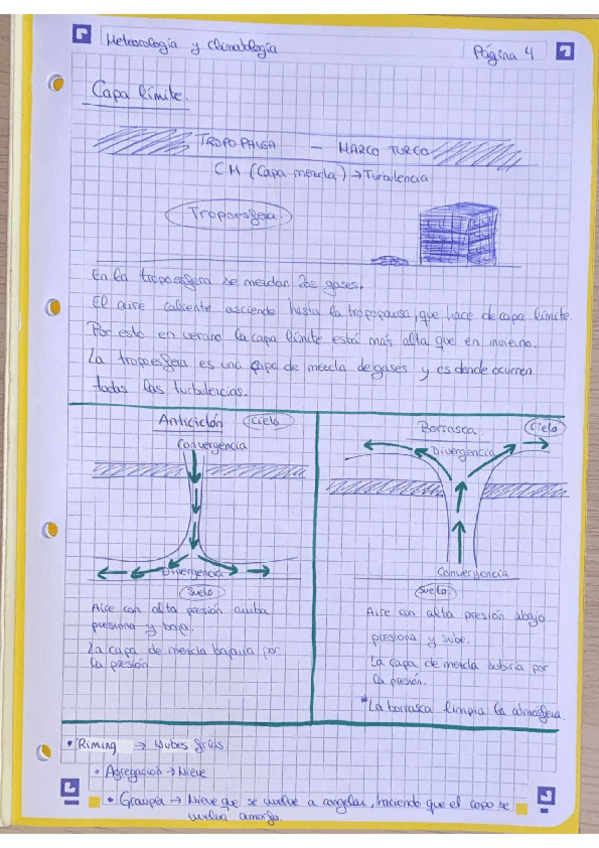 Meteorología y climatología
Página 4
Capa límite.
TROPOPAUSA — MARCO TURCO
CM (Capa mezcla) → Turbulencia
Troposfera
En la troposfera se mezclan los gases.
El aire caliente asciende hasta la tropopausa, que hace de capa límite.
Por esto en verano la capa límite está más alta que en invierno.
La troposfera es una capa de mezcla de gases y es donde ocurren
todas las turbulencias.
Anticiclón Cielo
Convergencia
Divergencia
Suelo
Aire con alta presión arriba
presiona y baja.
La capa de mezcla bajaría por
la presión
Borrasca Cielo
Divergencia
Convergencia
Suelo
Aire con alta presión abajo
presiona y sube.
La capa de mezcla subiría por
la presión.
*La borrasca limpia la atmósfera
• Riming → Nubes grais.
• Agregación → Nieve
• Graupel → Nieve que se vuelve a congelar, haciendo que el copo se
vuelva amorfo.